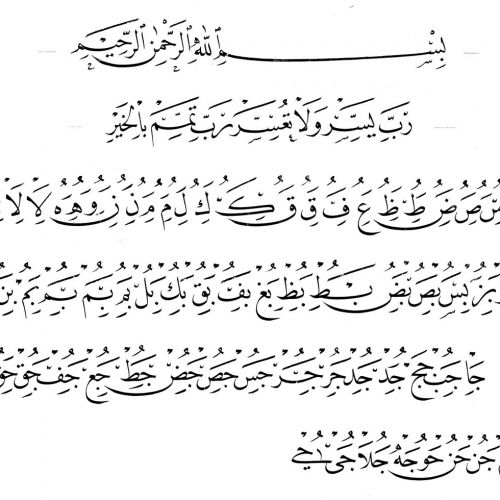 بِسْمِ اللهِ الرَّحْمٰنِ الرَّحِيْمِ
رَبِّ يَسِّرْ وَلَا تُعَسِّرْ رَبِّ تَمِّمْ بِالْخَيْرِ
صُ ضُ طُ ظُ عُ فُ قُ قُ كُ كُ لُ مُ مُ نُ نُ وُ هُ هُ لَا لَا
بس بص بض بط بظ بغ بف بق بك بل بم بم بم بم بن
جا جب جج جد جد جر جر جس جص جض جط جع جف جق
جن جن جو جه جلا جى